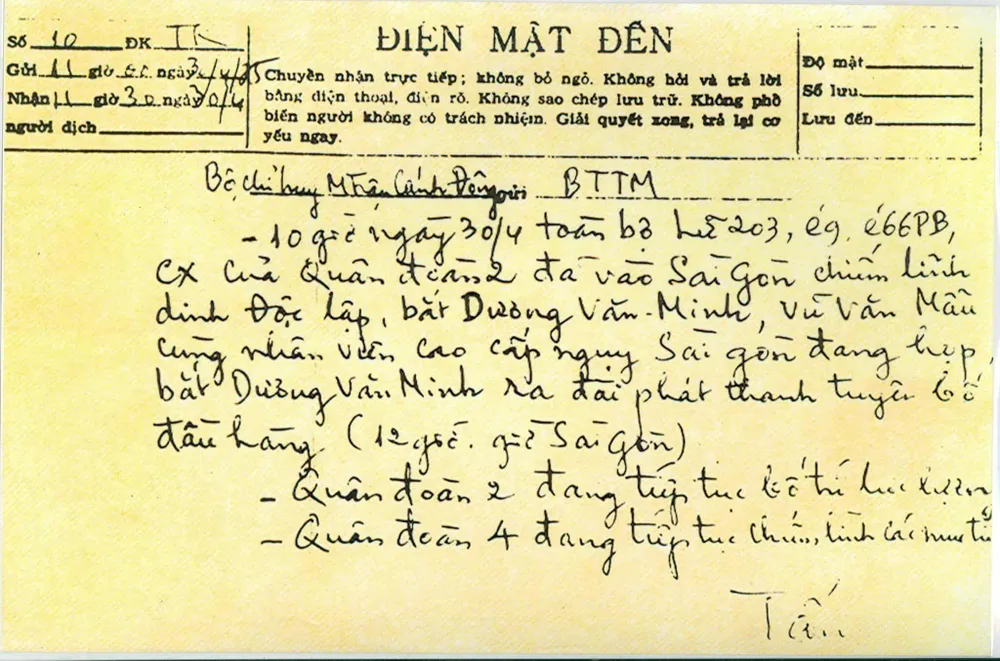 ĐIỆN MẬT ĐẾN
Số 10 ĐK TK
Gửi 11 giờ ngày 30/4/75
Nhận 11 giờ 30 ngày 30/4
người dịch
Chuyển nhận trực tiếp; không bỏ ngỏ. Không hỏi và trả lời
bằng điện thoại, điện rõ. Không sao chép lưu trữ. Không phổ
biến người không có trách nhiệm. Giải quyết xong, trả lại cơ
yếu ngay.
Độ mật
Số lưu
Lưu đến
Bộ chỉ huy Mtrận Cánh Đông gửi BTTM
- 10 giờ ngày 30/4 toàn bộ Lữ 203, é9, é66PB,
CX của Quân đoàn 2 đã vào Sài Gòn chiếm lĩnh
dinh Độc lập, bắt Dương Văn-Minh, Vũ Văn Mẫu
cùng nhân viên cao cấp ngụy Sài gòn đang họp,
bắt Dương Văn Minh ra đài phát thanh tuyên bố
đầu hàng (12 giờ. giờ Sài Gòn)
- Quân đoàn 2 đang tiếp tục bố trí lực lượng
- Quân đoàn 4 đang tiếp tục chiếm lĩnh các mục
Tấn